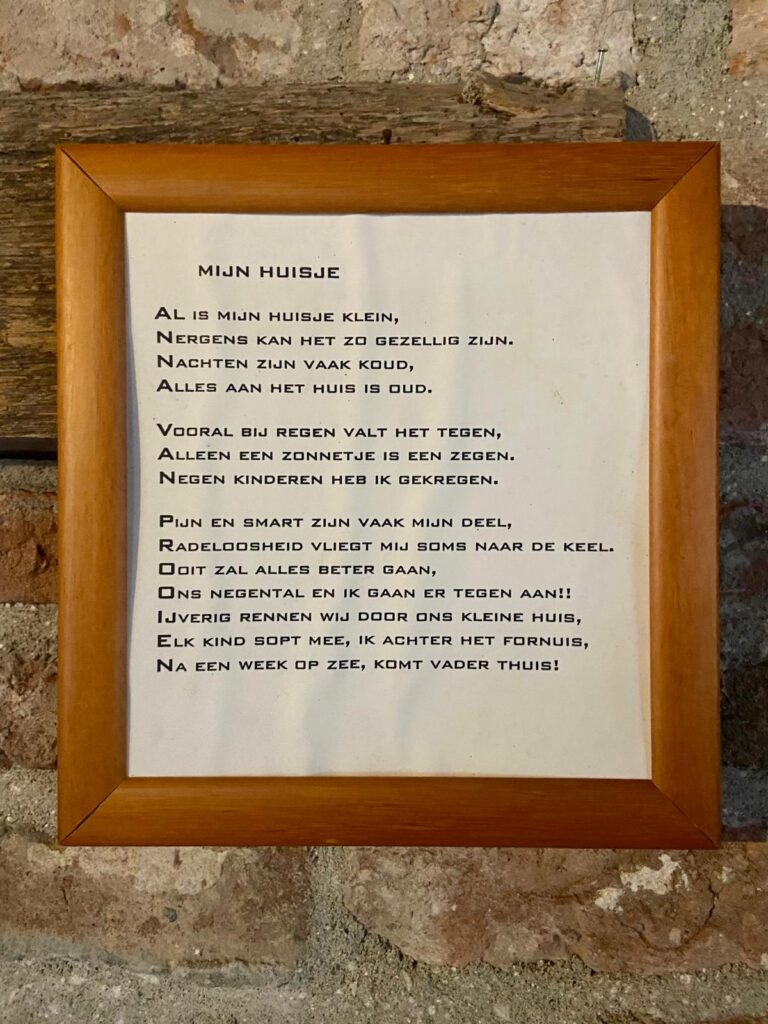 MIJN HUISJE
AL IS MIJN HUISJE KLEIN,
NERGENS KAN HET ZO GEZELLIG ZIJN.
NACHTEN ZIJN VAAK KOUD,
ALLES AAN HET HUIS IS OUD.
VOORAL BIJ REGEN VALT HET TEGEN,
ALLEEN EEN ZONNETJE IS EEN ZEGEN.
NEGEN KINDEREN HEB IK GEKREGEN.
PIJN EN SMART ZIJN VAAK MIJN DEEL,
RADELOOSHEID VLIEGT MIJ SOMS NAAR DE KEEL.
OOIT ZAL ALLES BETER GAAN,
ONS NEGENTAL EN IK GAAN ER TEGEN AAN!!
IJVERIG RENNEN WIJ DOOR ONS KLEINE HUIS,
ELK KIND SOPT MEE, IK ACHTER HET FORNUIS,
NA EEN WEEK OP ZEE, KOMT VADER THUIS!